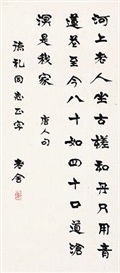 河上老人坐古槎和丹只用青
蓮花至今八十如四十口道滄
溟是我家 唐人句
同志正字 老舍